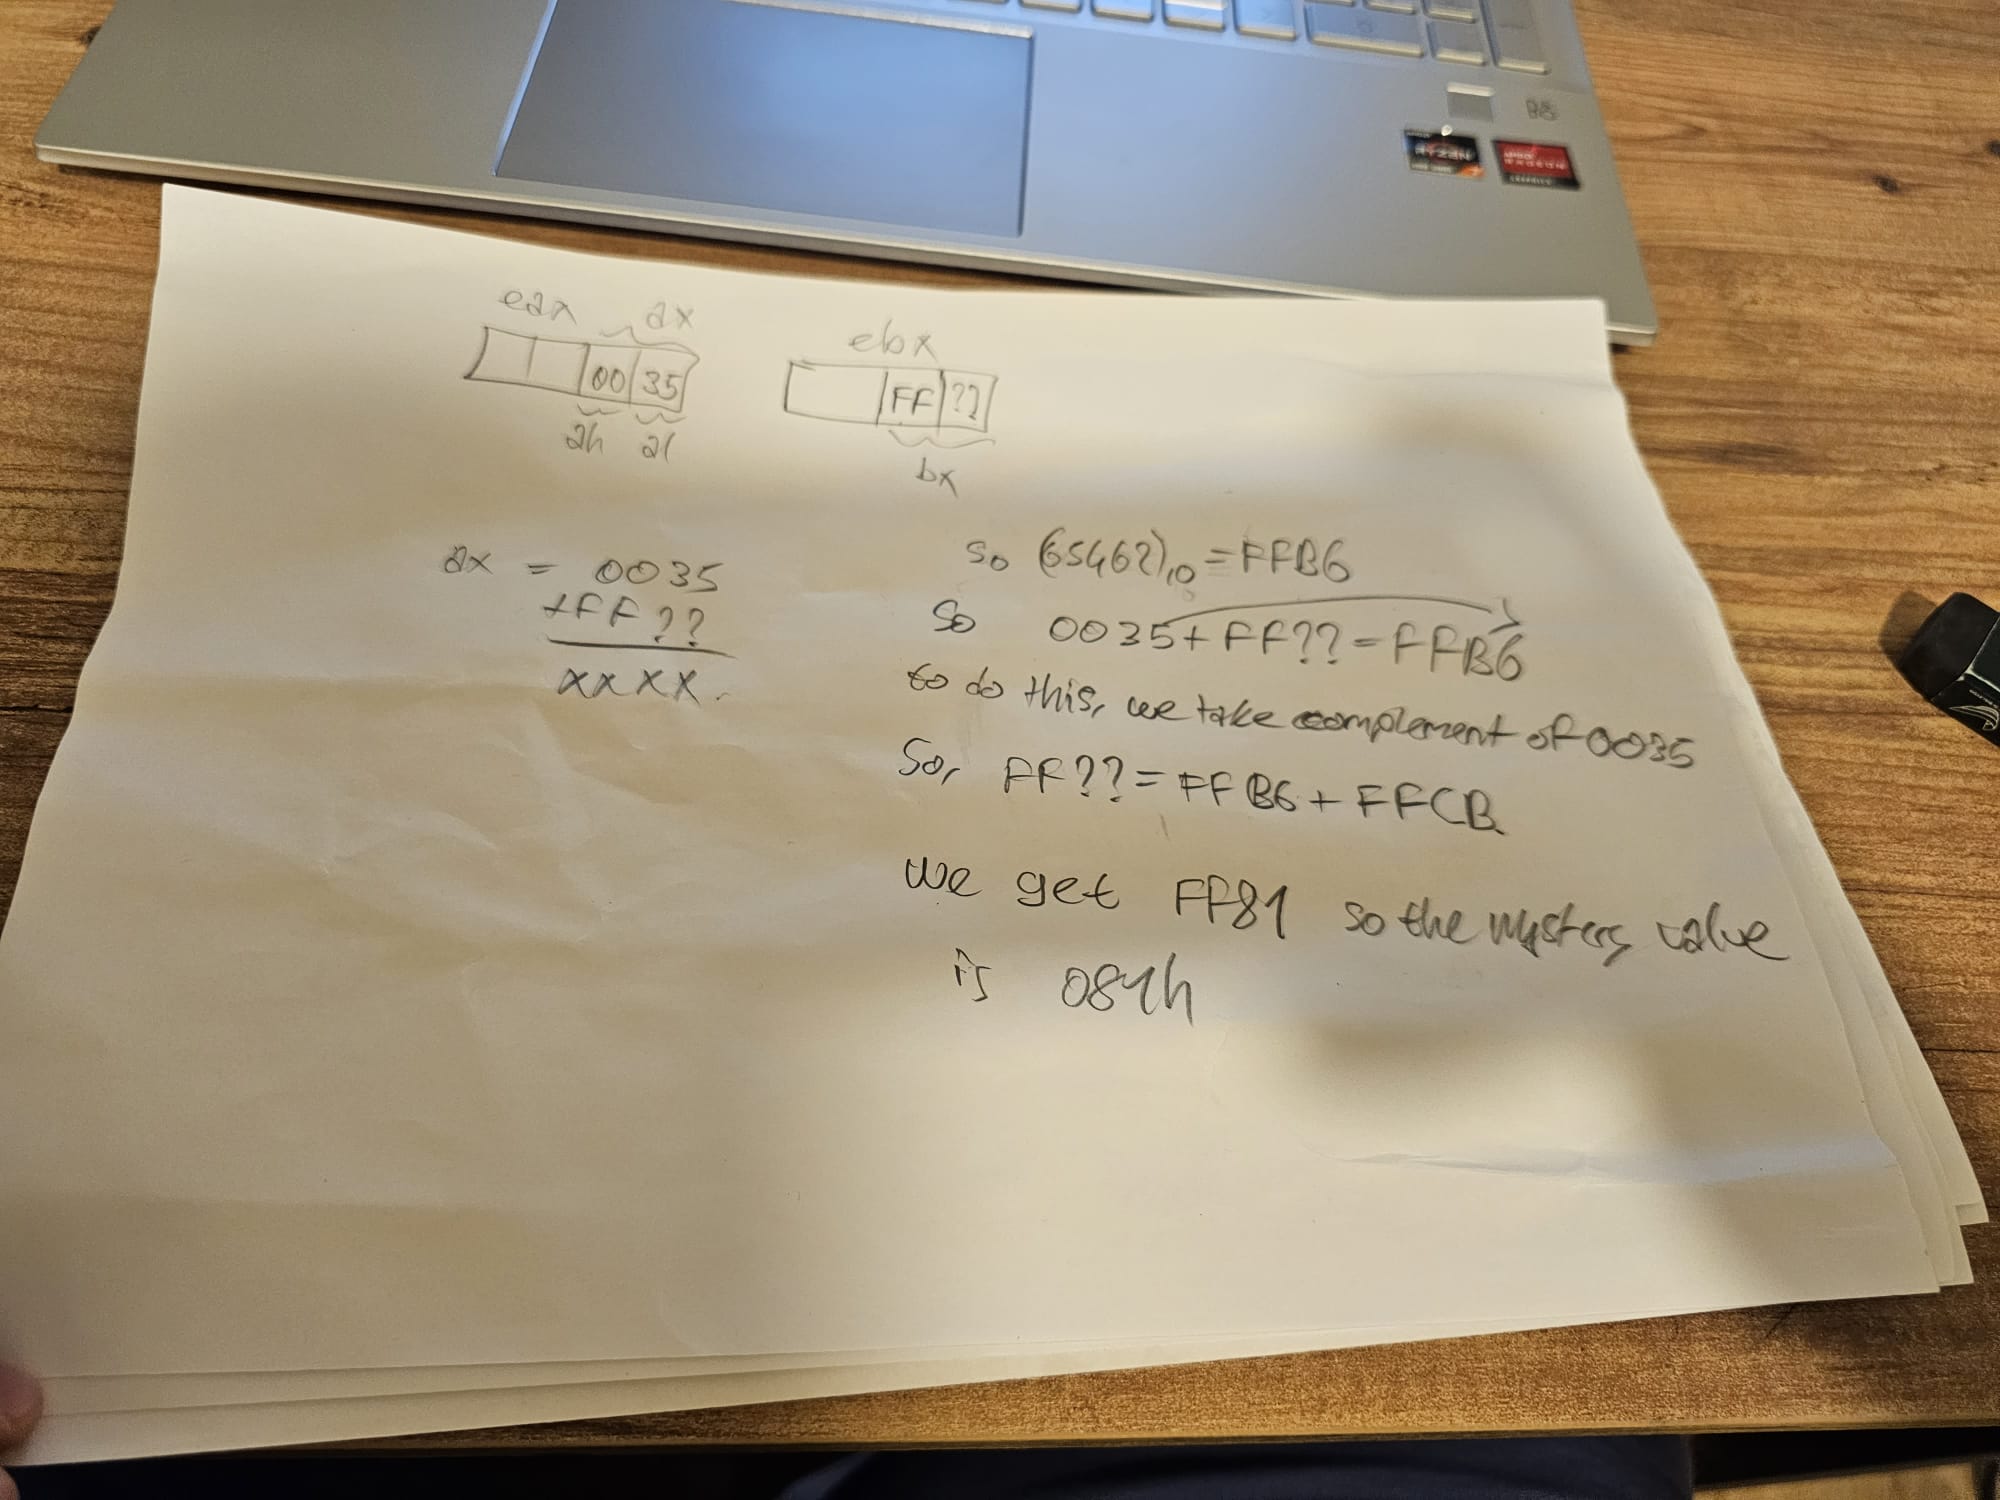 B&
RYZEN
RADEON
GRAPHICS
eax ax
00 35
ah al
ebx
FF ??
bx
ax = 0035
+FF??
xxxx
so (65462)10 = FFB6
so 0035 + FF?? = FFB6
to do this, we take complement of 0035
So, FF?? = FFB6 + FFCB
we get FF81 so the mystery value
is 081h